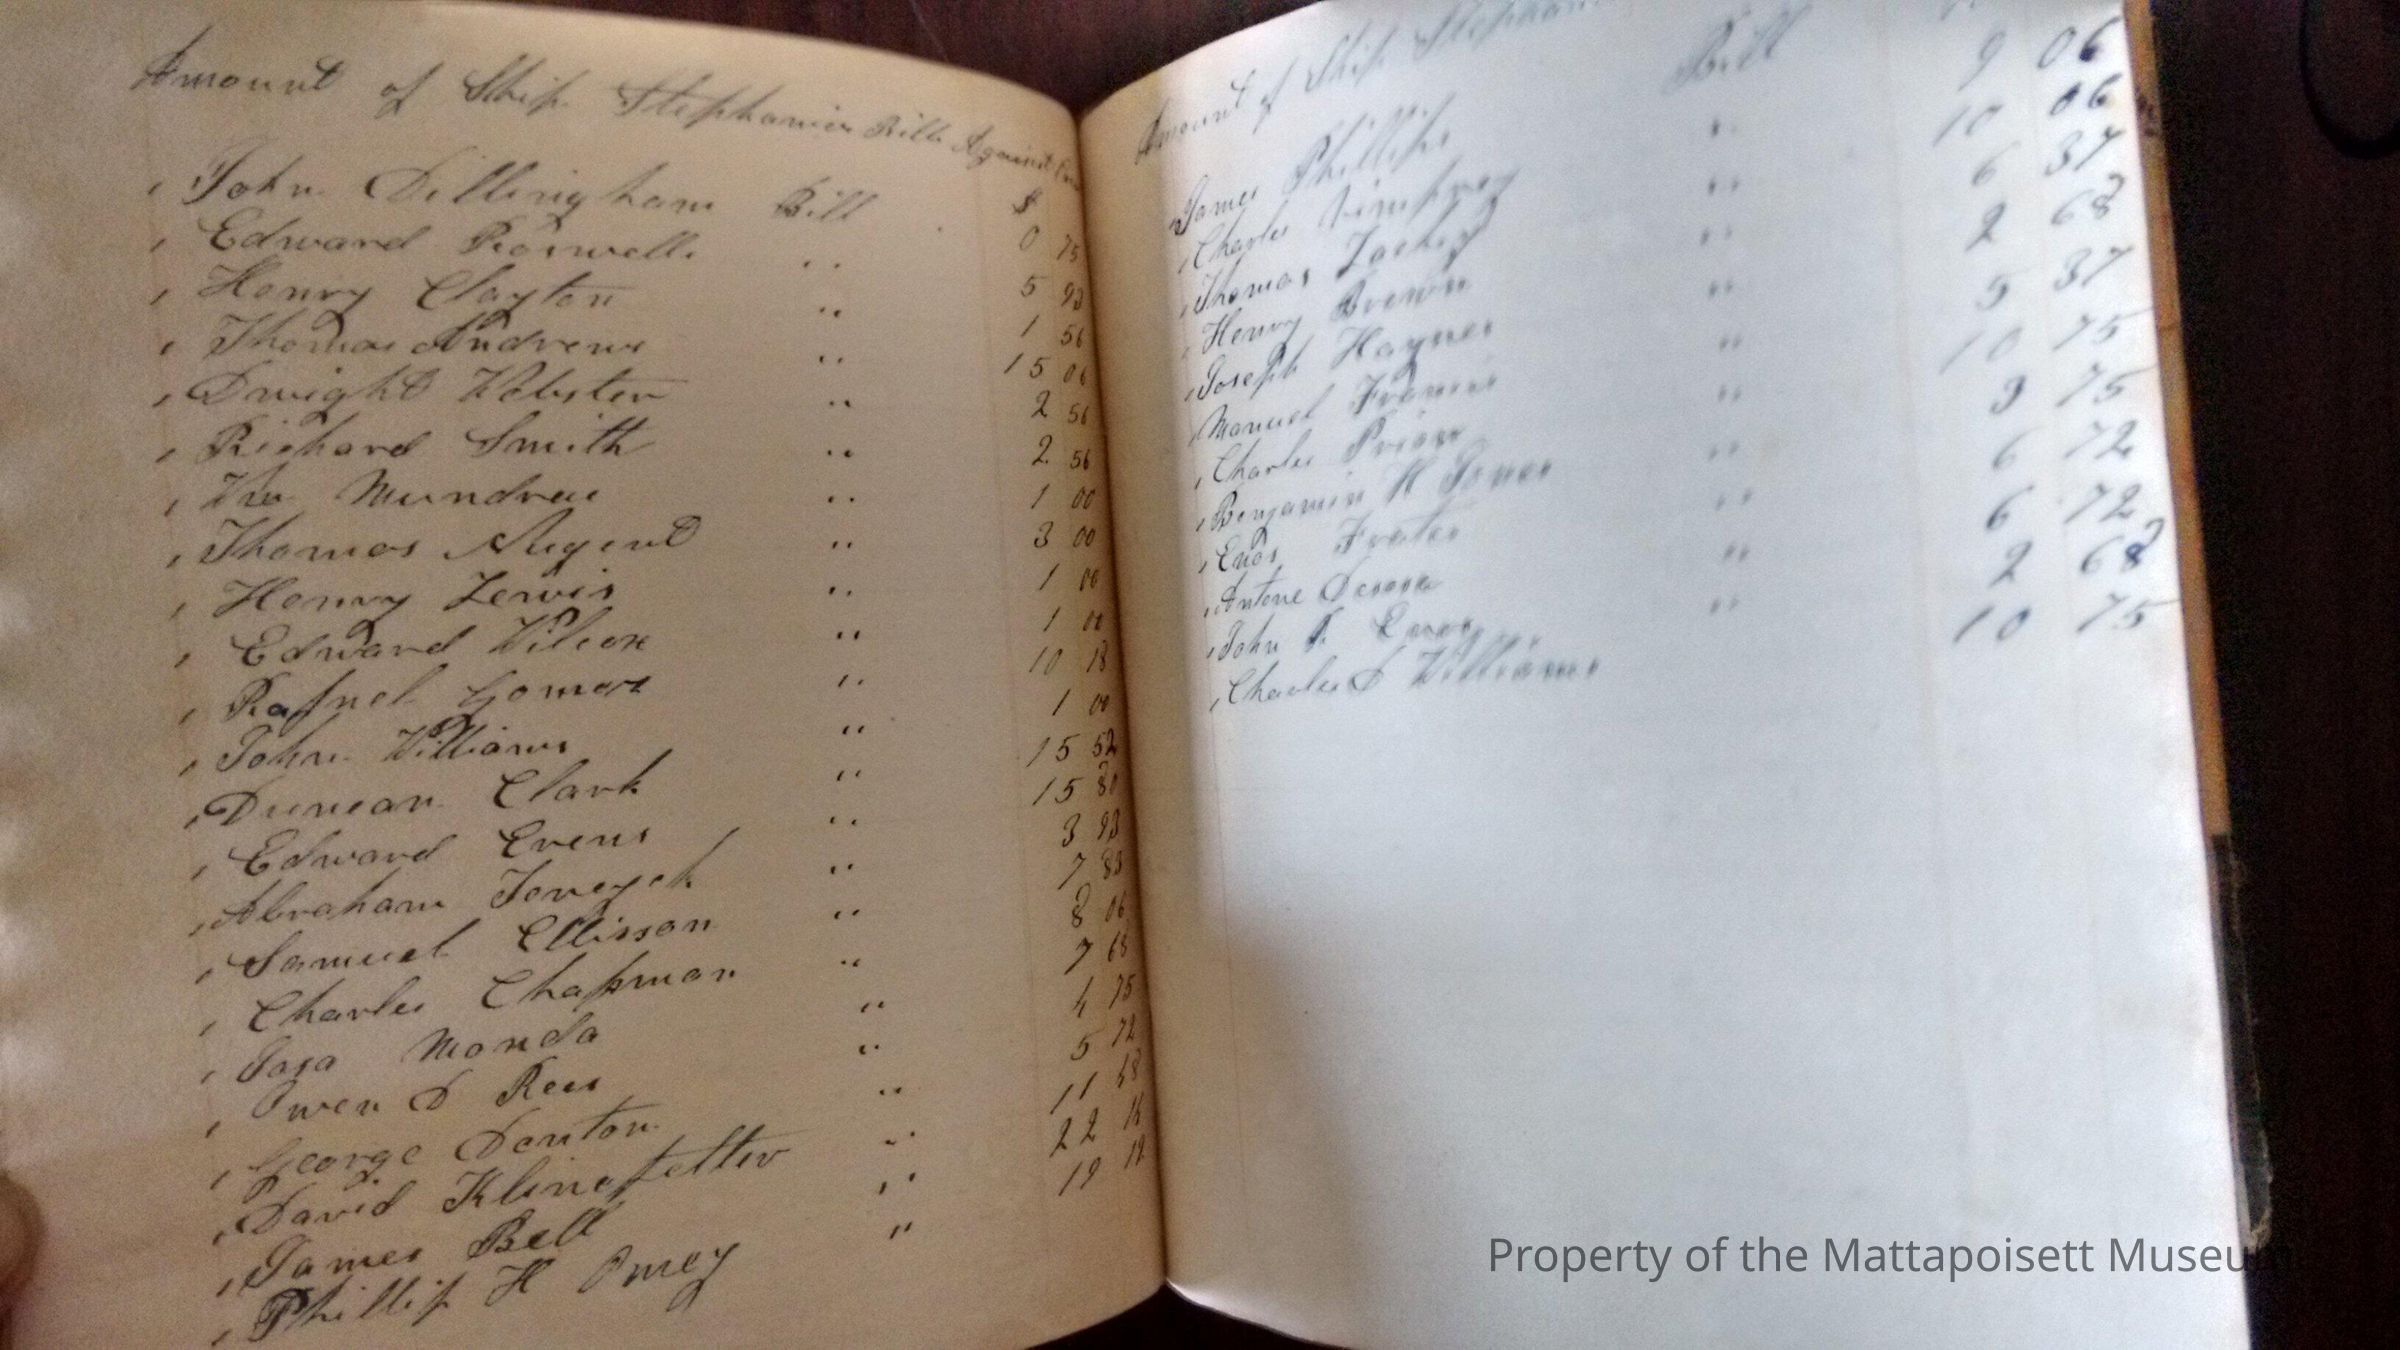 Amount of Ship Stephania Bills Against Crew
John Dillingham Bill $
Edward Roswell " 0 75
Henry Clayton " 5 93
Thomas Andrews " 1 56
Dwight Webster " 15 06
Richard Smith " 2 56
Wm Mundrew " 2 56
Thomas Nugent " 1 00
Henry Lewis " 3 00
Edward Wilcox " 1 00
Rafael Gomez " 1 00
John Williams " 10 18
Duncan Clark " 1 00
Edward Evens " 15 52
Abraham " 15 80
Samuel Ellisson " 3 93
Charles Chapman " 7 83
Jasa Monda " 8 06
Owen D Rees " 7 68
George Denton " 4 75
David Klinefelter " 5 72
James Bell " 11 48
Phillip H Omey " 22 14
19 12
Amount of Ship Stephania
James Phillips Bill 9 06
Charles " 10 06
Thomas " 6 37
Henry Brown " 2 68
Joseph Haynes " 5 37
Manuel Francis " 10 75
Charles Prior " 3 75
Benjamin H Jones " 6 72
Enos Frates " 6 72
Antone " 2 68
John P. Enos " 10 75
Charles D Williams
Property of the Mattapoisett Museum